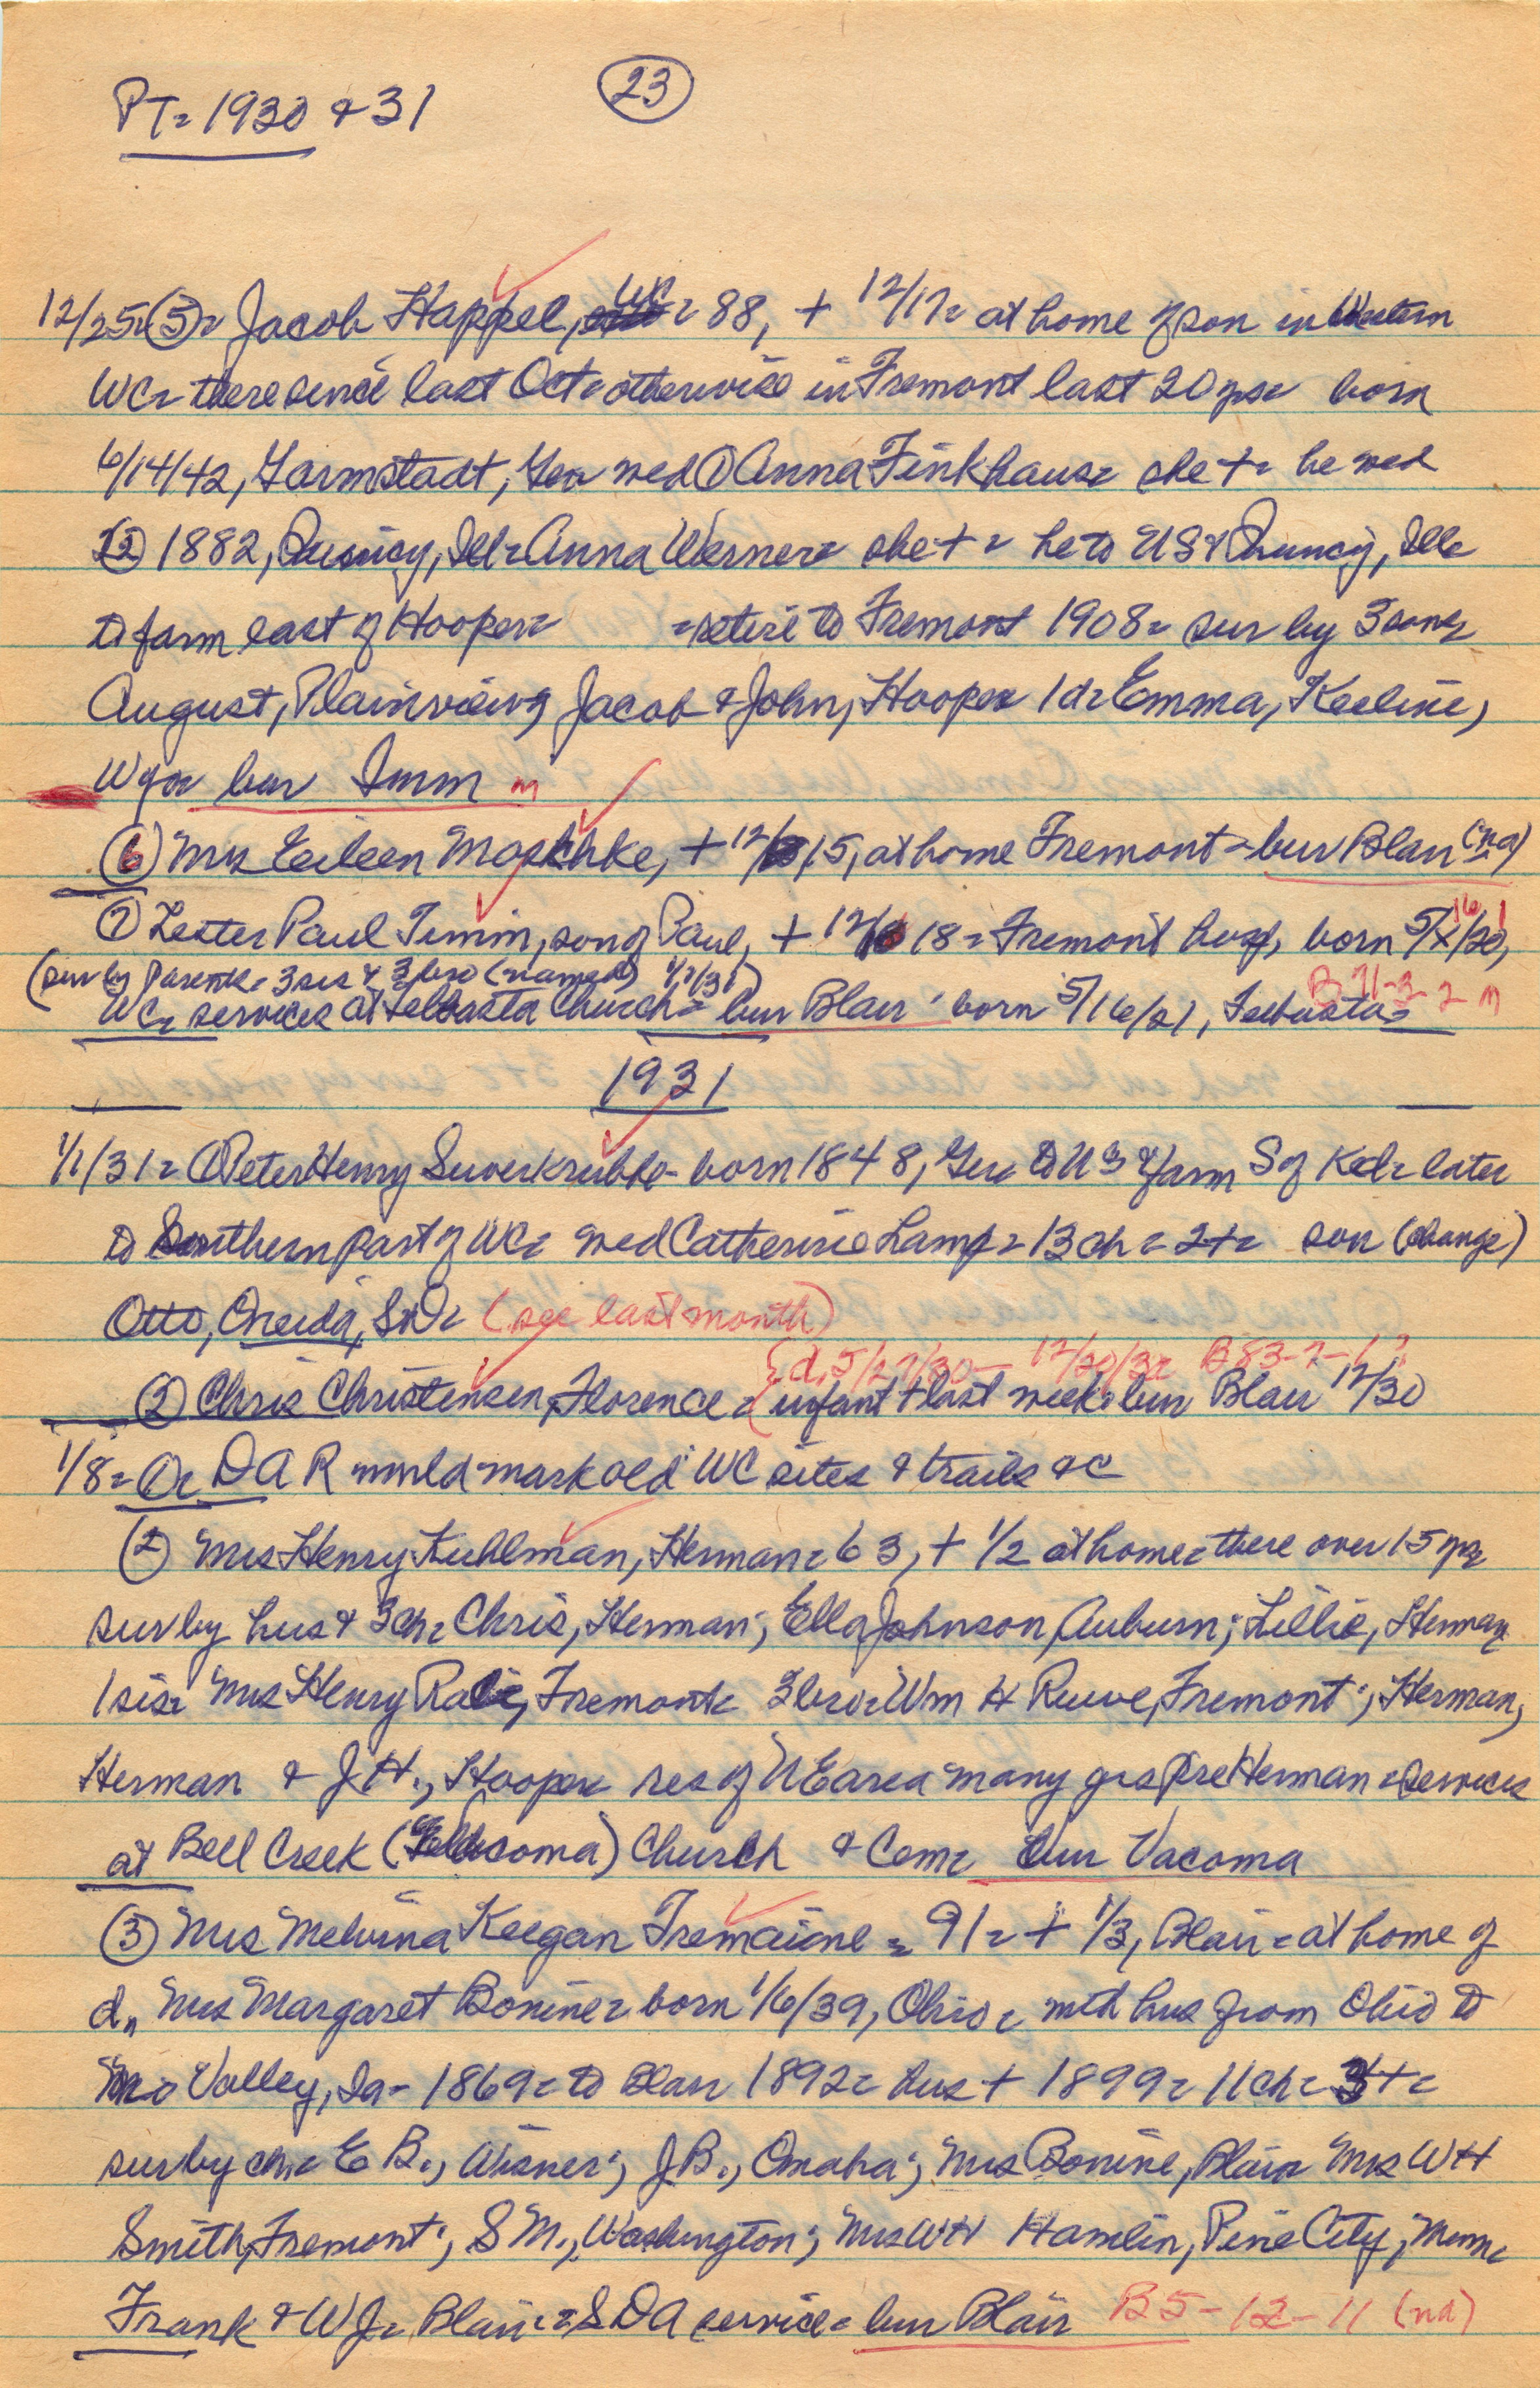 PT = 1930 & 31
23
12/25 = (5) = Jacob Happel, WC = 88, + 12/17 = at home of son in Western
WC = there since last Oct = otherwise in Fremont last 20 yrs = born
6/14/42, Darmstadt, Ger wed (1) Anna Finkhaus = she + = he wed
(2) 1882, Quincy, Ill = Anna Werner = she + = he to US & Quincy, Ill =
to farm east of Hooper = = retire to Fremont 1908 = sur by 3 sons
August, Plainview; Jacob & John, Hooper 1 d = Emma, Keeline,
Wyo = bur Imm m
(6) Mrs Eileen Maschke, + 12/15, at home Fremont = bur Blair (na)
(7) Lester Paul Timm, son of Paul, + 12/18 = Fremont hosp, born 5/16/21,
(sur by parents = 3 sis & 3 bro (named) 1/1/31)
WC = services at Telbasta Church = bur Blair born 5/16/21, Telbasta = B 71-3-2 m
1931
1/1/31 = (1) Peter Henry Suverkrubbe - born 1848, Ger to US & farm S of Ked = later
to Southern part of WC = wed Catherine Lamp = 13 ch = 2 + = son (change)
Otto, Oneida, SD = (see last month)
{d. 5/27/30 - 12/30/30 B 83-7-1?
(2) Chris Christensen, Florence = (infant + last week = bur Blair 12/30
1/8 = (1) = DAR would mark old WC sites & trails &c
(2) Mrs Henry Kuhlman, Herman = 63, + 1/2 at home = there over 15 yrs
sur by hus & 3 ch = Chris, Herman; Ella Johnson, Auburn; Lillie, Herman
1 sis = Mrs Henry , Fremont = 3 bro = Wm H Ruwe, Fremont; Herman,
Herman & J.H., Hooper = res of NE area many yrs pre Herman = services
at Bell Creek (Vacoma) Church & Cem = bur Vacoma
(3) Mrs Melvina Keegan Tremaine = 91 = + 1/3, Blair = at home of
d, Mrs Margaret Bonine = born 1/6/39, Ohio = with hus from Ohio to
Mo Valley, Ia - 1869 = to Blair 1892 = hus + 1899 = 11 ch = 3 + =
sur by ch = E B., Wisner; J B., Omaha; Mrs Bonine, Blair Mrs W H
Smith, Fremont; S M., Washington; Mrs W H Hamlin, Pine City, Minn =
Frank & W J = Blair = SDA service = bur Blair B 5-12-11 (na)